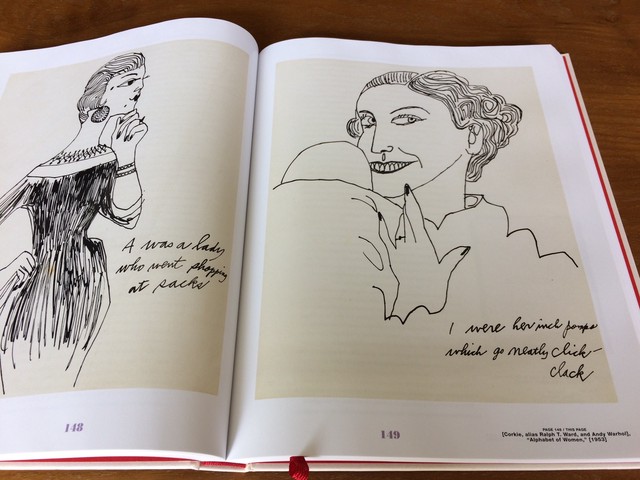 A was a lady
who went shopping
at sacks
148
I were her inch pomps
which go neatly click-
clack
149
PAGE 148 / THIS PAGE
[Corkie, alias Ralph T. Ward, and Andy Warhol],
"Alphabet of Women," [1953]